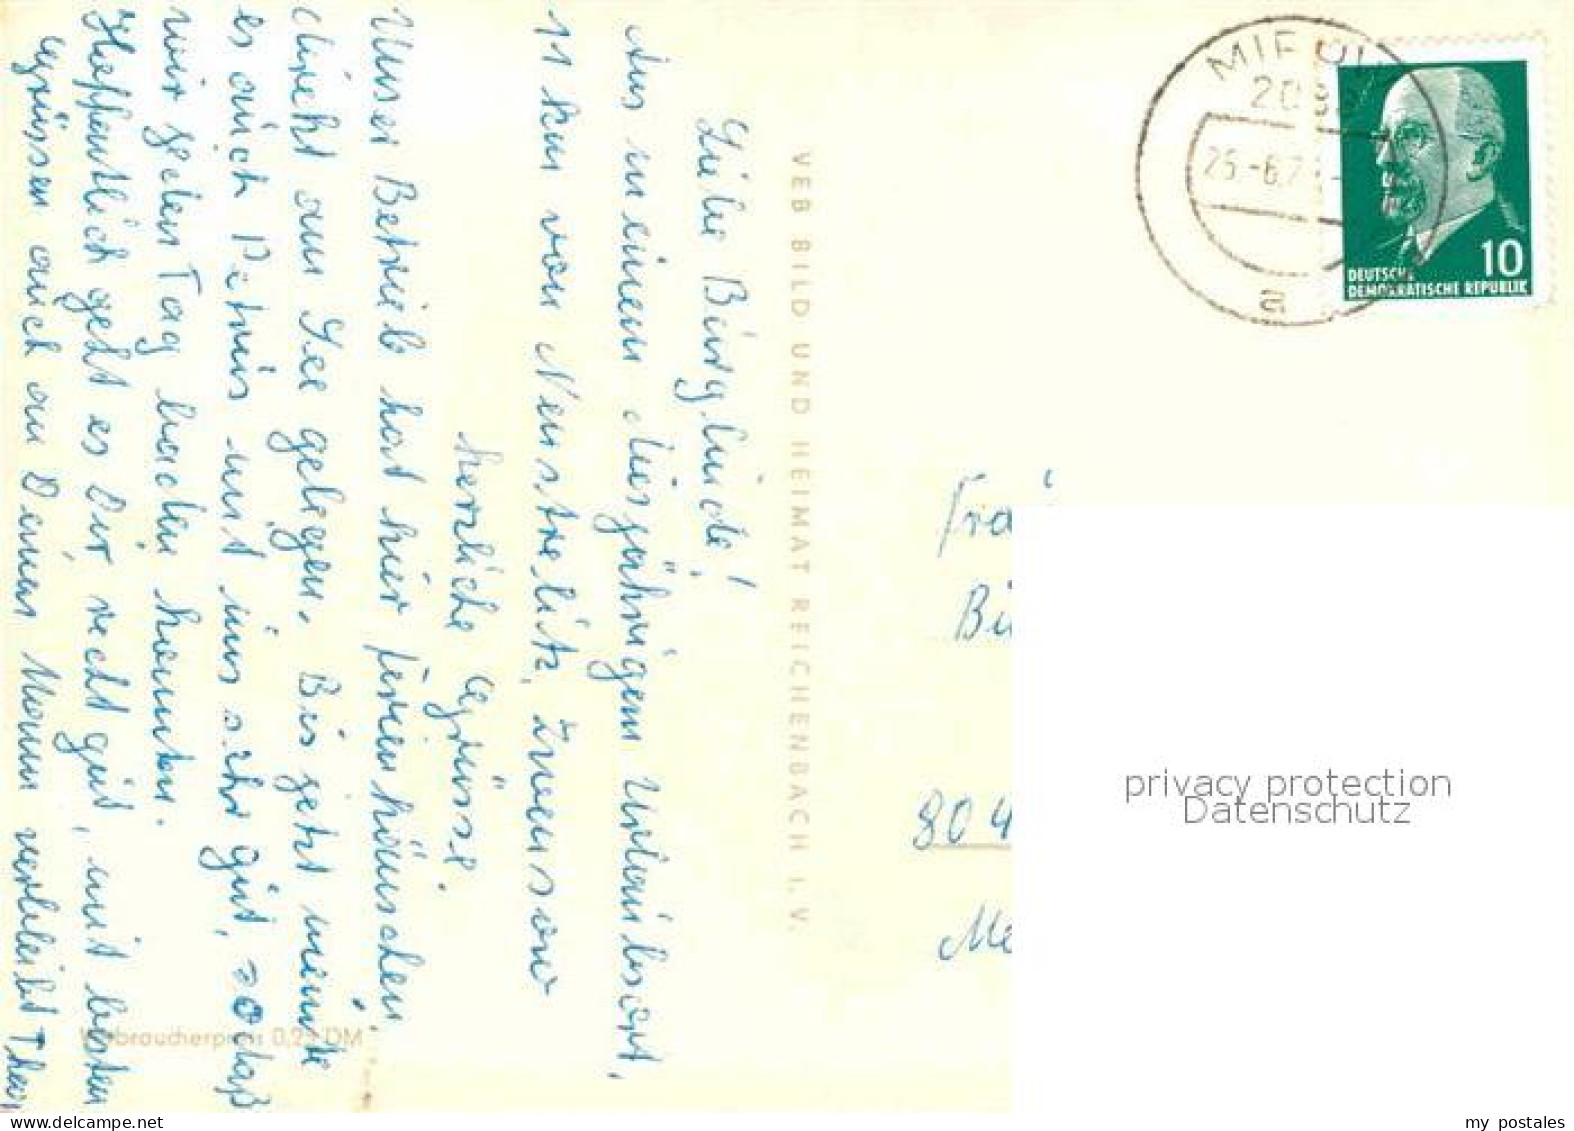 Liebe Burglinde!
Aus meinem diesjährigen Urlaubsort,
11 km von Neustrelitz, Zwenzow
herzliche Grüsse.
Unser Betrieb hat hier Ferienhäuschen
direkt am See gelegen. Bis jetzt meinte
es auch Petrus mit uns sehr gut, sodaß
wir jeden Tag baden konnten.
Hoffentlich geht es Dir recht gut, mit besten
Grüssen auch an Deinen Mann verbleibt
VEB BILD UND HEIMAT REICHENBACH I. V.
Verbraucherpreis 0,25 DM
MIROW
208
a
DEUTSCHE
DEMOKRATISCHE REPUBLIK
10
804
privacy protection
Datenschutz
my postales
www.delcampe.net